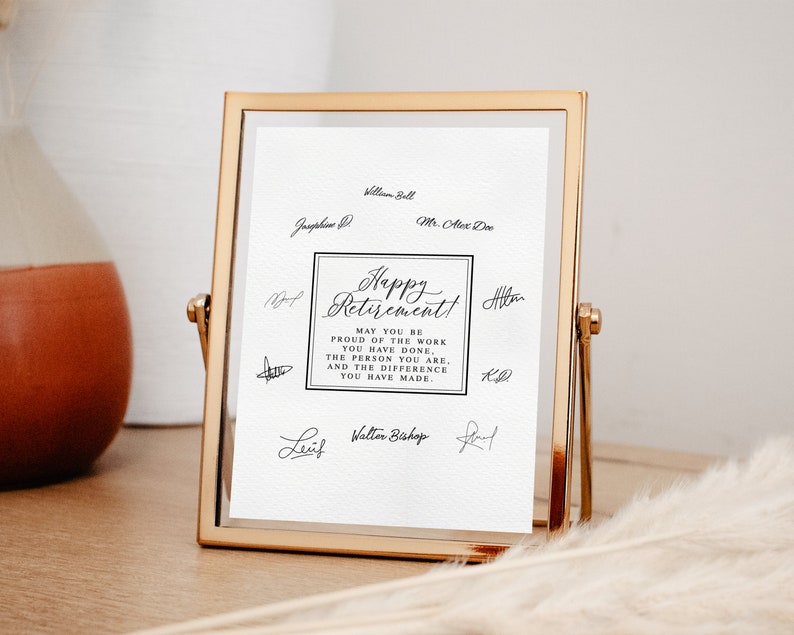 William Bell
Josephine D. Mr. Alex Doe
Happy
Retirement!
MAY YOU BE
PROUD OF THE WORK
YOU HAVE DONE,
THE PERSON YOU ARE,
AND THE DIFFERENCE
YOU HAVE MADE.
K.D.
Walter Bishop